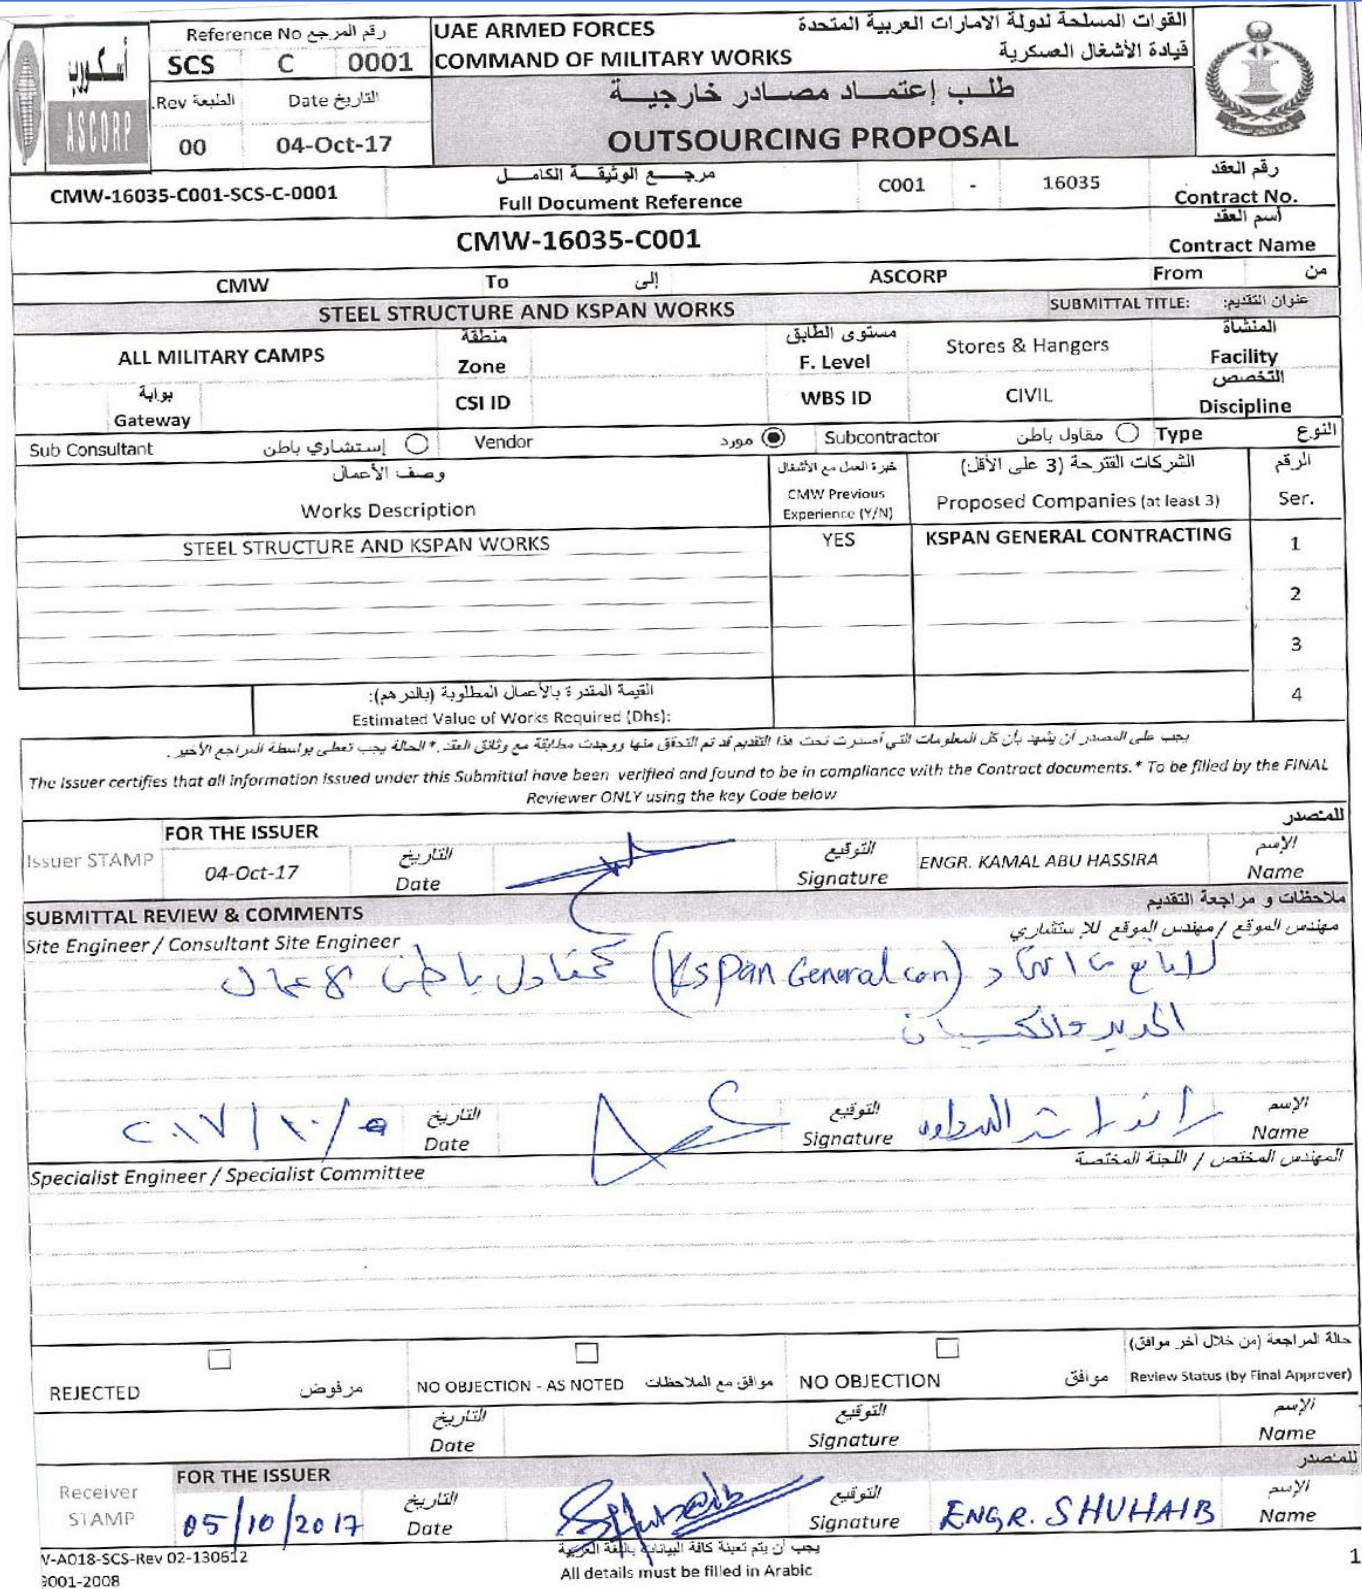 أسكورب
ASCORP
Reference No رقم المرجع
SCS C 0001
Rev. الطبعة Date التاريخ
00 04-Oct-17
UAE ARMED FORCES القوات المسلحة لدولة الامارات العربية المتحدة
COMMAND OF MILITARY WORKS قيادة الأشغال العسكرية
طلب إعتماد مصادر خارجية
OUTSOURCING PROPOSAL
CMW-16035-C001-SCS-C-0001
مرجع الوثيقة الكامل
Full Document Reference
C001 - 16035
رقم العقد
Contract No.
CMW-16035-C001
أسم العقد
Contract Name
CMW To إلى ASCORP From من
STEEL STRUCTURE AND KSPAN WORKS SUBMITTAL TITLE: عنوان التقديم:
ALL MILITARY CAMPS
منطقة
Zone
مستوى الطابق
F. Level
Stores & Hangers
المنشاة
Facility
بوابة
Gateway
CSI ID
WBS ID
CIVIL
التخصص
Discipline
Sub Consultant إستشاري باطن Vendor مورد Subcontractor مقاول باطن Type النوع
وصف الأعمال
Works Description
خبرة العمل مع الأشغال
CMW Previous
Experience (Y/N)
الشركات المقترحة (3 على الأقل)
Proposed Companies (at least 3)
الرقم
Ser.
STEEL STRUCTURE AND KSPAN WORKS YES KSPAN GENERAL CONTRACTING 1
2
3
4
القيمة المقدرة بالأعمال المطلوبة (بالدرهم):
Estimated Value of Works Required (Dhs):
يجب على المصدر أن يشهد بأن كل المعلومات التي أصدرت تحت هذا التقديم قد تم التحقق منها ووجدت مطابقة مع وثائق العقد.* الحالة يجب تعطى بواسطة المراجع الأخير.
The Issuer certifies that all information issued under this Submittal have been verified and found to be in compliance with the Contract documents.* To be filled by the FINAL
Reviewer ONLY using the key Code below
FOR THE ISSUER للمصدر
Issuer STAMP
04-Oct-17
التاريخ
Date
التوقيع
Signature
ENGR. KAMAL ABU HASSIRA
الإسم
Name
SUBMITTAL REVIEW & COMMENTS ملاحظات و مراجعة التقديم
Site Engineer / Consultant Site Engineer مهندس الموقع /مهندس الموقع للإستشاري
لا مانع من اعتماد (Kspan General con) كمقاول باطن لأعمال
الحديد والكسبان
٢٠١٧/١٠/٥
التاريخ
Date
التوقيع
Signature
الإسم
Name
Specialist Engineer / Specialist Committee المهندس المختص / اللجنة المختصة
حالة المراجعة (من خلال آخر موافق)
REJECTED مرفوض NO OBJECTION - AS NOTED موافق مع الملاحظات NO OBJECTION موافق Review Status (by Final Approver)
التاريخ
Date
التوقيع
Signature
الإسم
Name
FOR THE ISSUER للمصدر
Receiver
STAMP
05/10/2017
التاريخ
Date
Shuhaib
التوقيع
Signature
ENGR. SHUHAIB
الإسم
Name
V-A018-SCS-Rev 02-130612
يجب أن يتم تعبئة كافة البيانات باللغة العربية
9001-2008
All details must be filled in Arabic
1